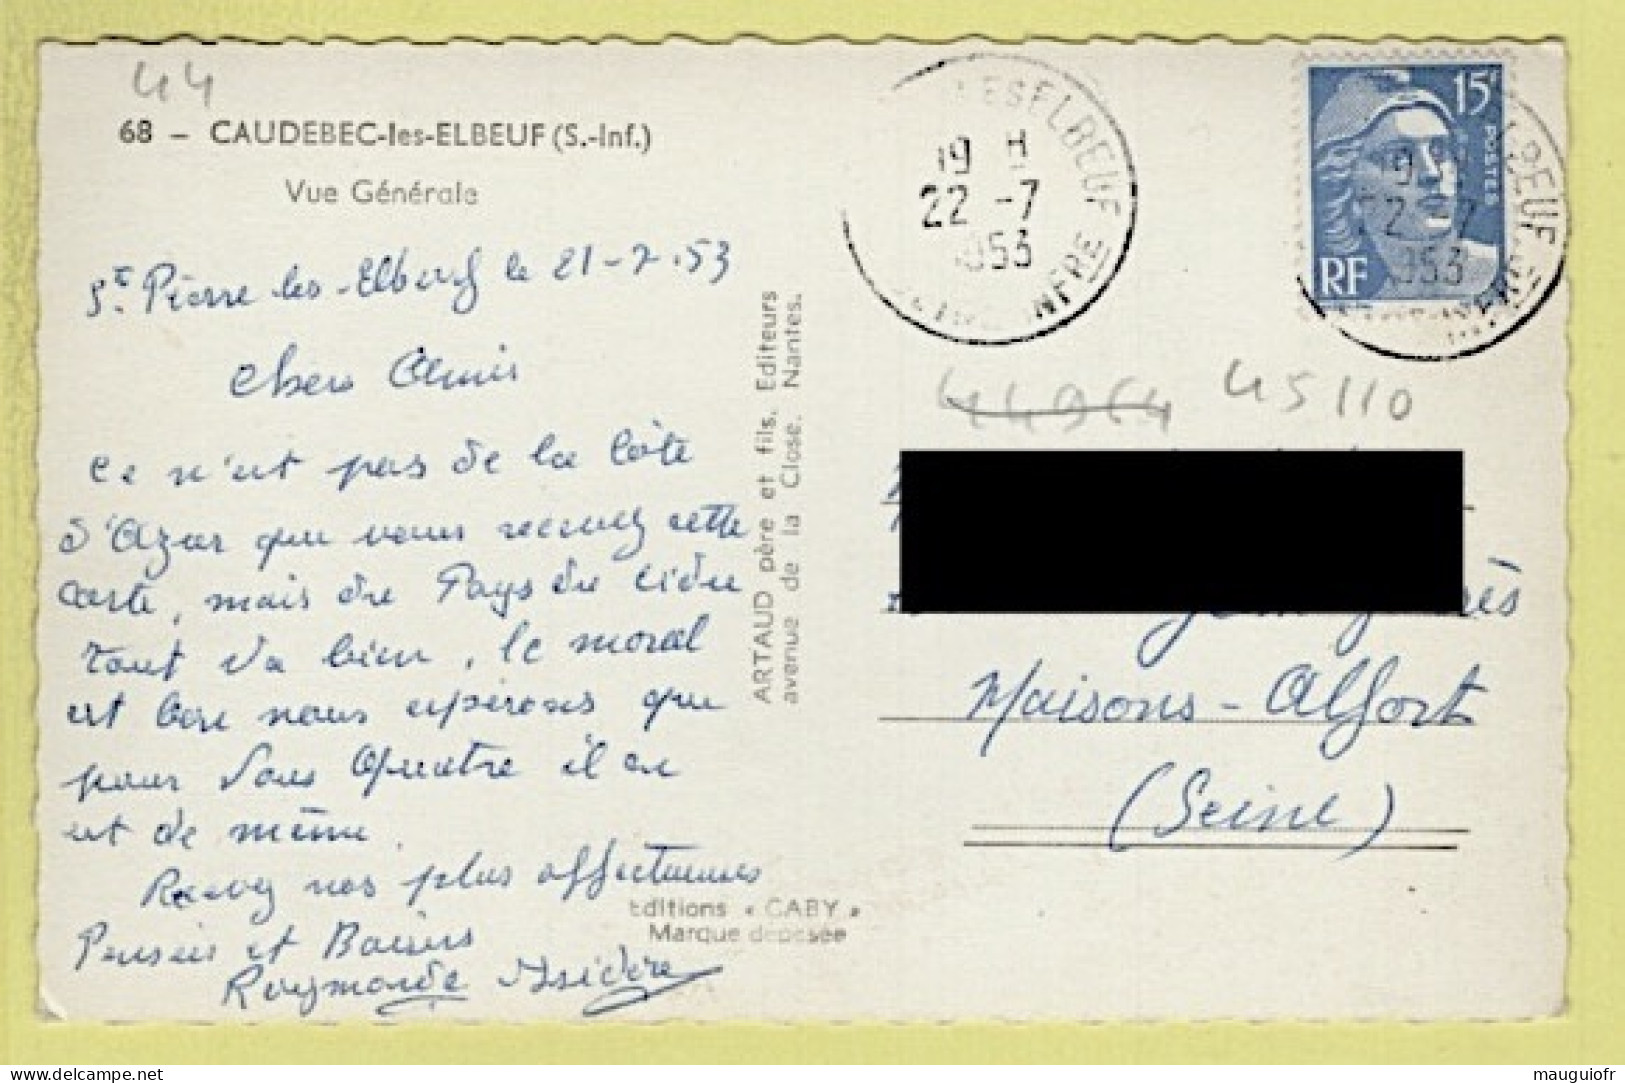 44
68 - CAUDEBEC-les-ELBEUF (S.-Inf.)
Vue Générale
St Pierre les-Elbeuf le 21-7.53
Chers Amis
Ce n'est pas de la Côte
d'Azur que vous recevez cette
carte, mais du Pays du Cidre
tout va bien, le moral
est bon nous espérons que
pour Vous Quatre il en
est de même.
Recevez nos plus affectueuses
Pensées et Baisers
Raymonde Isidore
ARTAUD père et fils. Editeurs
avenue de la Close. Nantes.
Editions « GABY »
Marque déposée
LESELBEUF
19 H
22 -7
1953
SEINE INFRE
15F
POSTES
RF
19 H
22 -7
1953
LBEUF
INFRE
45110
Maisons-Alfort
(Seine)
mauguiofr